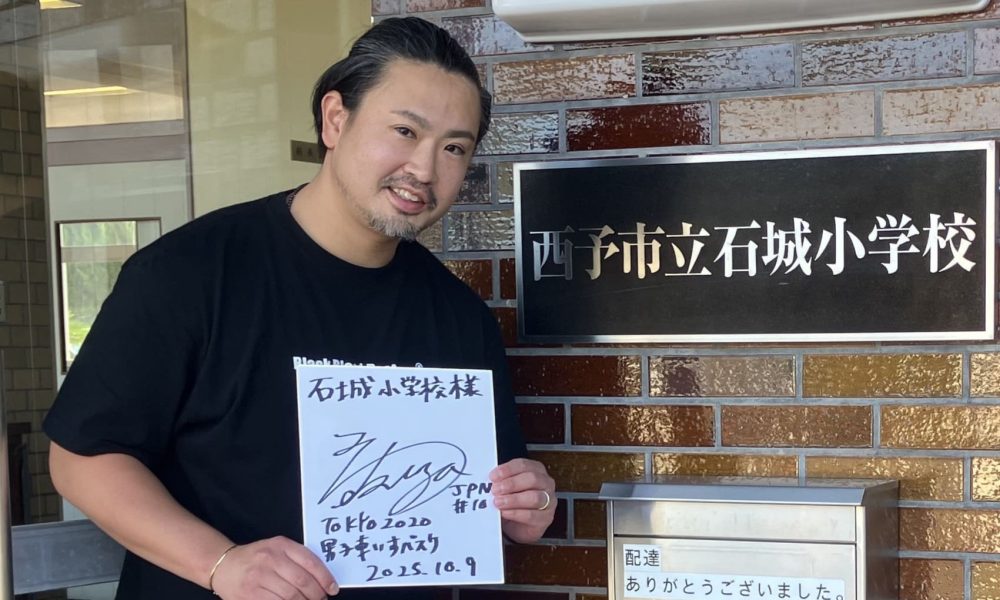 西予市立石城小学校
石城小学校様
JPN
#10
TOKYO2020
男子車いすバスケ
2025.10.9
配達
ありがとうございました。